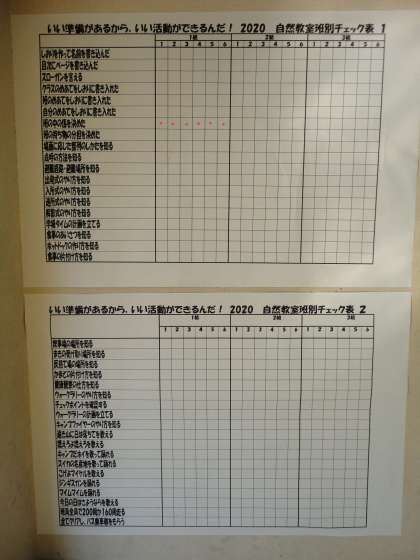 いい準備があるから、いい活動ができるんだ！ 2020 自然教室班別チェック表 1
1組 2組 3組
1 2 3 4 5 6 1 2 3 4 5 6 1 2 3 4 5 6
しおりを作って名前を書き込んだ
目次にページを書き込んだ
スローガンを言える
クラスのめあてをしおりに書き入れた
班のめあてをしおりに書き入れた
自分のめあてをしおりに書き入れた
班の中の係を決めた
班の持ち物の分担を決めた
場面に応じた整列のしかたを知る
点呼の方法を知る
避難経路・避難場所を知る
出発式のやり方を知る
入所式のやり方を知る
退所式のやり方を知る
解散式のやり方を知る
学級タイムの計画を立てる
食事のあいさつを知る
ホットドックの作り方を知る
食事の片付け方を知る
いい準備があるから、いい活動ができるんだ！ 2020 自然教室班別チェック表 2
1組 2組 3組
1 2 3 4 5 6 1 2 3 4 5 6 1 2 3 4 5 6
炊事場の場所を知る
まきの受け取り場所を知る
灰捨て場の場所を知る
かまどの片付け方を知る
健康観察の仕方を知る
ウォークラリーのやり方を知る
チェックポイントを確認する
ウォークラリーの計画を立てる
キャンプファイヤーのやり方を知る
遠き山に日は落ちてを歌える
燃えろよ燃えろを歌える
キャンプだホイを歌って踊れる
スイカの名産地を歌って踊れる
こげよマイケルを歌える
ジンギスカンを踊れる
マイムマイムを踊れる
今日の日はさようならを歌える
班員全員で200周か160周走る
全てクリアし、バス乗車順をもらう